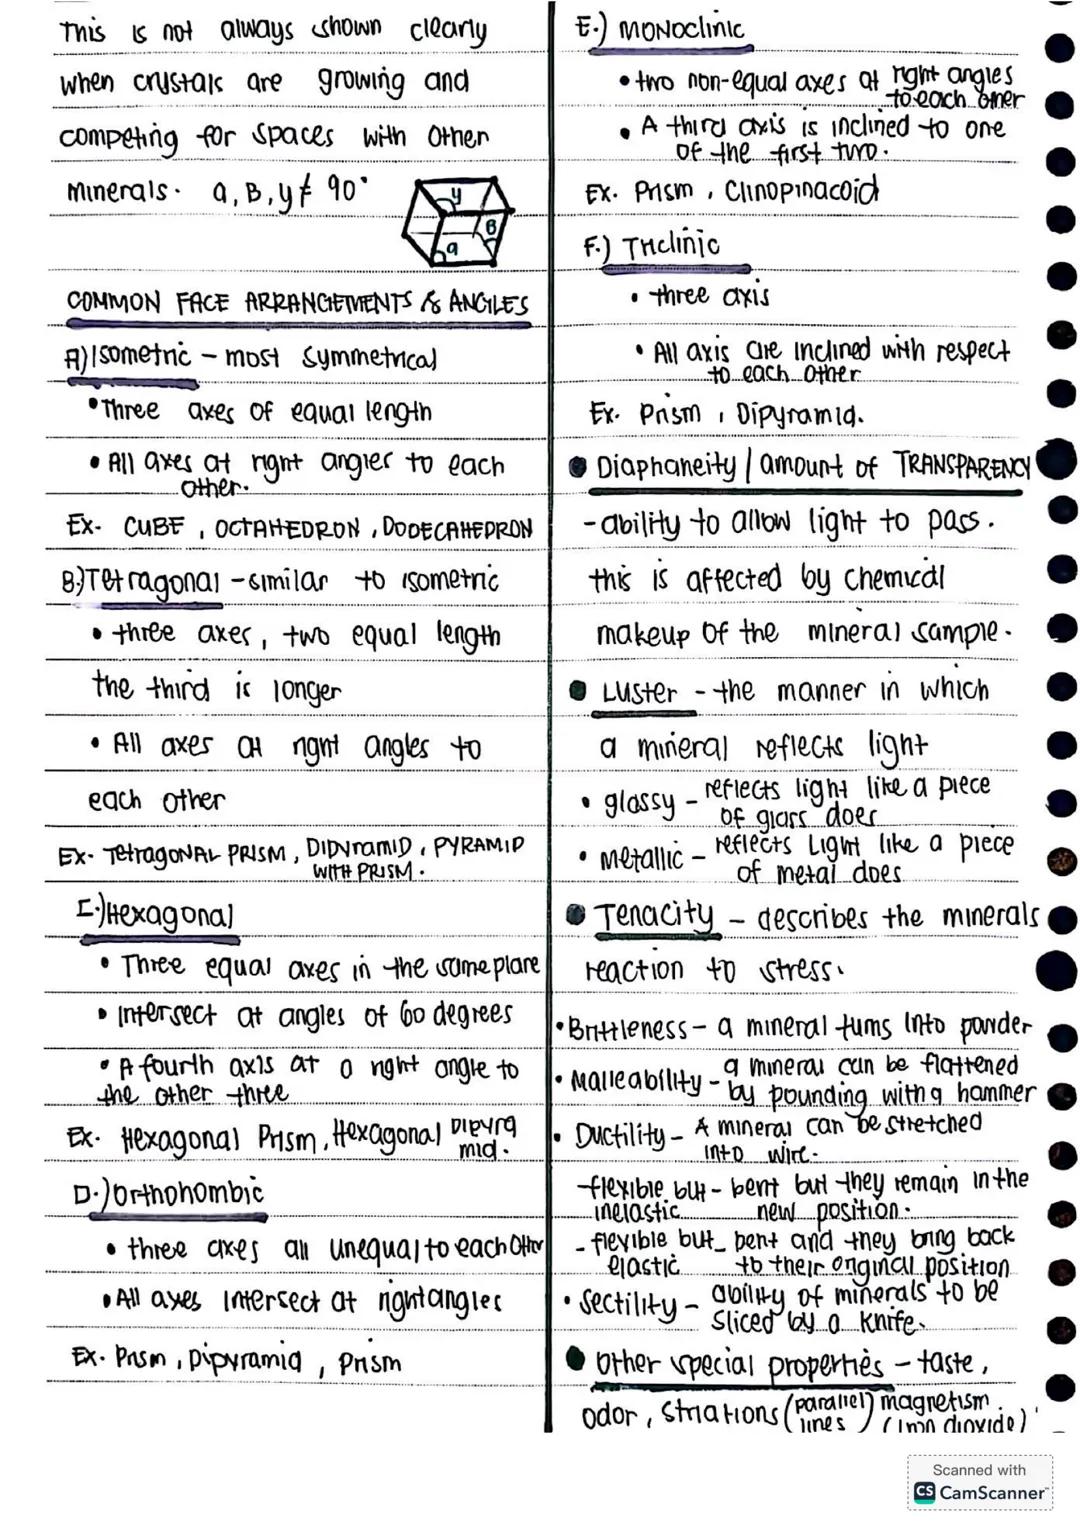 This is not always shown clearly
when crystals are growing and
competing for spaces with other
minerals. a, B, y ≠ 90°
y
B
a
COMMON FACE ARRANGEMENTS & ANGLES
A) Isometric - most symmetrical
• Three axes of equal length
• All axes at right angles to each
other.
Ex. CUBE, OCTAHEDRON, DODECAHEDRON
B.) Tetragonal - similar to isometric
• three axes, two equal length
the third is longer
• All axes at right angles to
each other
Ex. Tetragonal PRISM, DIPYramID, PYRAMID
WITH PRISM.
C.) Hexagonal
• Three equal axes in the same plane
• Intersect at angles of 60 degrees
• A fourth axis at a right angle to
the other three
Ex. Hexagonal Prism, Hexagonal Dipyra
mid.
D.) Orthohombic
• three axes all unequal to each other
• All axes intersect at right angles
Ex. Prism, Dipyramid, Prism
E.) Monoclinic
• two non-equal axes at right angles
to each other
• A third axis is inclined to one
of the first two.
Ex. Prism, Clinopinacoid
F.) Triclinic
• three axis
• All axis are inclined with respect
to each other
Ex. Prism, Dipyramid.
• Diaphaneity / amount of TRANSPARENCY
- ability to allow light to pass.
this is affected by chemical
makeup of the mineral sample.
• Luster - the manner in which
a mineral reflects light
• glossy - reflects light like a piece
of glass does
• Metallic - reflects Light like a piece
of metal does
• Tenacity - describes the minerals
reaction to stress.
• Brittleness - a mineral turns into powder
• Malleability - a mineral can be flattened
by pounding with a hammer
• Ductility - A mineral can be stretched
into wire.
- flexible but - bent but they remain in the
inelastic new position.
- flexible but - bent and they bring back
elastic to their original position
• Sectility - ability of minerals to be
sliced by a knife.
• Other special properties - taste,
odor, striations (parallel lines) magnetism
(Iron dioxide)
Scanned with
CS CamScanner